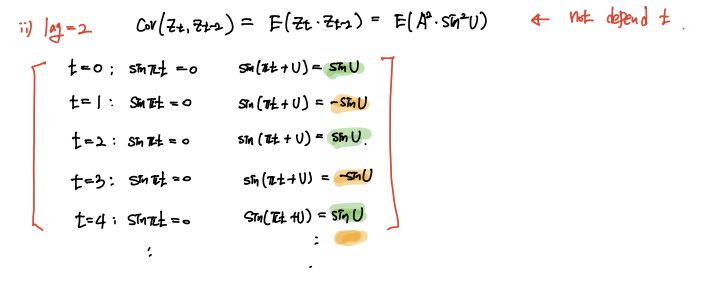 ii) lag=2 Cov(Zt, Zt-2) = E(Zt·Zt-2) = E(A²·sin²U) ← not depend t.
t=0 ; sin πt = 0 sin(πt+U) = sin U
t=1 ; sin πt = 0 sin(πt+U) = -sin U
t=2 ; sin πt = 0 sin(πt+U) = sin U.
t=3 ; sin πt = 0 sin(πt+U) = -sin U
t=4 ; sin πt = 0 sin(πt+U) = sin U
⋮ ⋮